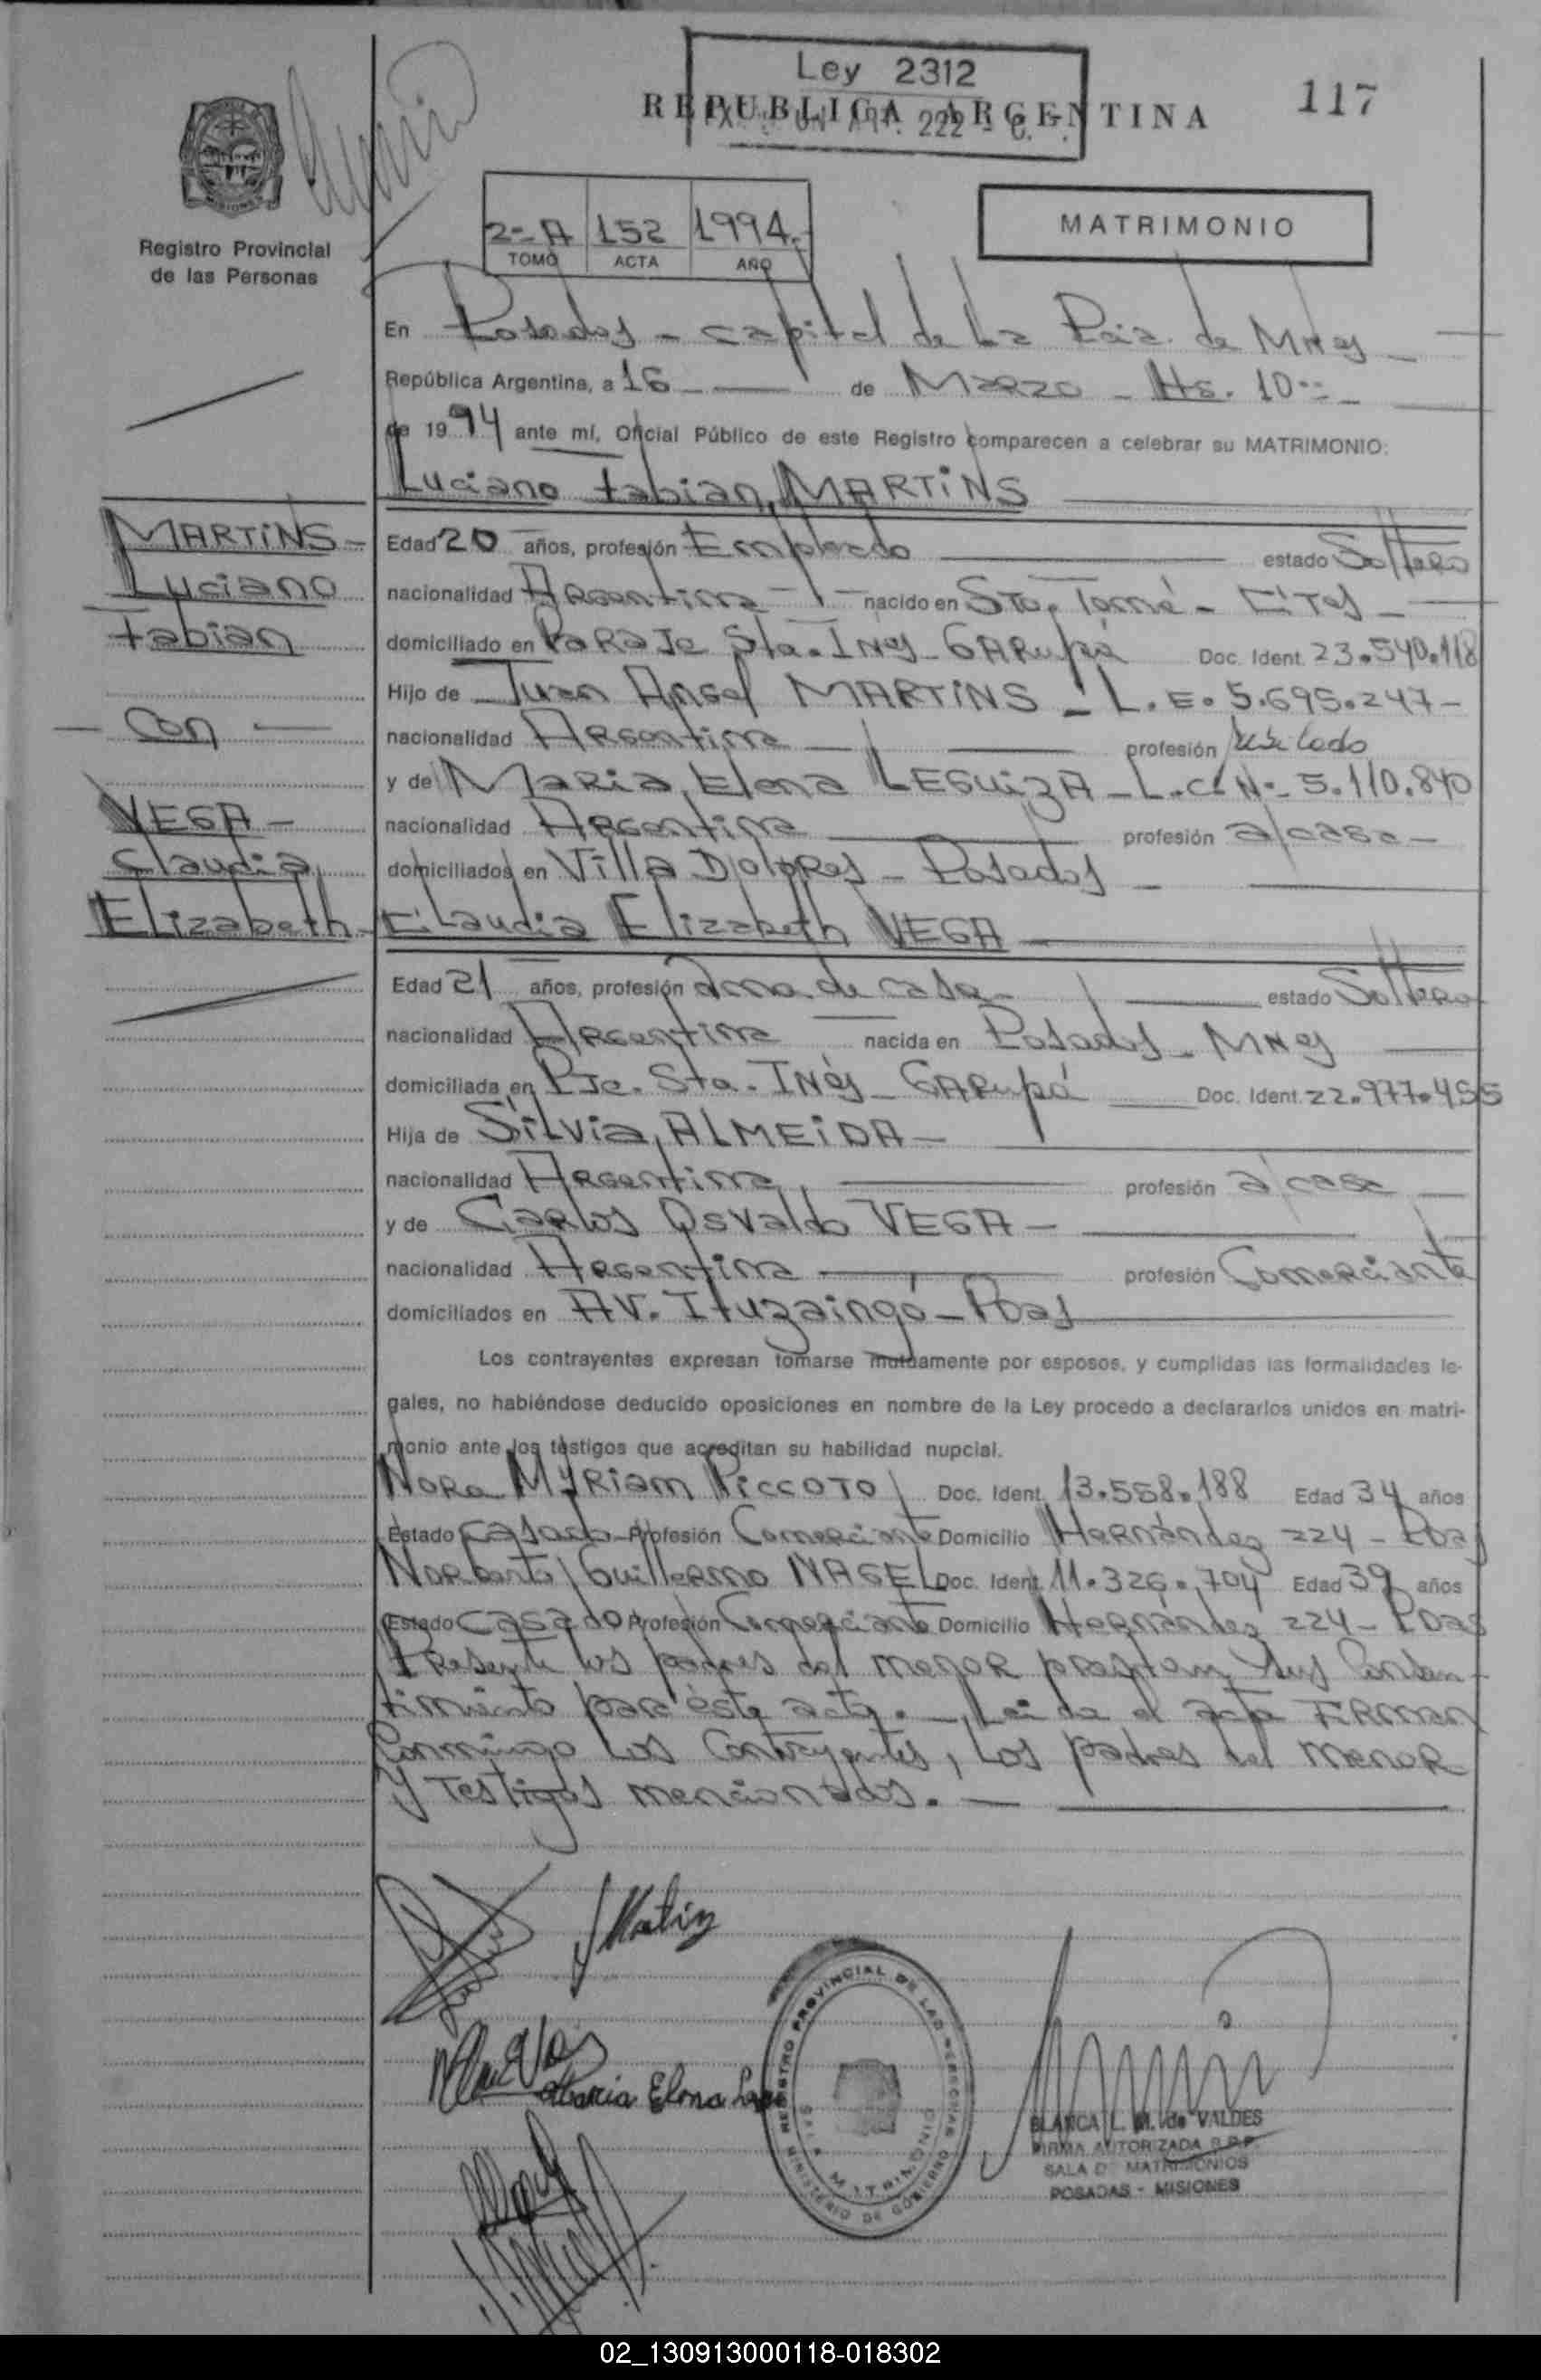 Ley 2312
REPUBLICA ARGENTINA
117
222
MISIONES
Registro Provincial
de las Personas
2-A 152 1994
TOMO ACTA AÑO
MATRIMONIO
En Posadas - capital de La Pcia. de Mnes
República Argentina, a 16 de Marzo - Hs. 10
de 1994 ante mí, Oficial Público de este Registro comparecen a celebrar su MATRIMONIO:
Luciano Fabian, MARTINS
MARTINS -
Luciano
Fabian
Con
VEGA -
Claudia
Elizabeth
Edad 20 años, profesión Empleado estado Soltero
nacionalidad Argentina nacido en Sto. Tomé - Ctes -
domiciliado en Paraje Sta. Inés - Garupá Doc. Ident. 23.540.118
Hijo de Juan Angel MARTINS - L.E. 5.695.247 -
nacionalidad Argentina profesión Jubilado
y de Maria, Elena LEGUIZA - L.C. N- 5.110.840
nacionalidad Argentina profesión a/casa -
domiciliados en Villa Dolores - Posadas -
Claudia Elizabeth VEGA
Edad 21 años, profesión ama de casa - estado Soltera
nacionalidad Argentina nacida en Posadas - Mnes
domiciliada en Pje. Sta. Inés - Garupá Doc. Ident. 22.977.455
Hija de Silvia, ALMEIDA -
nacionalidad Argentina profesión a/casa
y de Carlos Osvaldo VEGA -
nacionalidad Argentina profesión Comerciante
domiciliados en AV. Ituzaingó - Pdas
Los contrayentes expresan tomarse mutuamente por esposos, y cumplidas las formalidades le-
gales, no habiéndose deducido oposiciones en nombre de la Ley procedo a declararlos unidos en matri-
monio ante los testigos que acreditan su habilidad nupcial.
Nora Myriam PICCOTO Doc. Ident. 13.558.188 Edad 34 años
Estado Casada Profesión Comerciante Domicilio Hernández 224 - Pdas
Norberto Guillermo NAGEL Doc. Ident. 11.326.704 Edad 39 años
Estado Casado Profesión Comerciante Domicilio Hernández 224 - Pdas
Presente los padres del menor prestan sus Consen-
timiento para éste acto. - Leida el acta Firman
Conmigo Los Contrayentes, Los padres del menor
Y Testigos mencionados. -
Maria Elena
REGISTRO PROVINCIAL DE LAS PERSONAS
MINISTERIO DE GOBIERNO
BLANCA L. M. de VALDES
FIRMA AUTORIZADA R.P.P.
SALA DE MATRIMONIOS
POSADAS - MISIONES
02_130913000118-018302